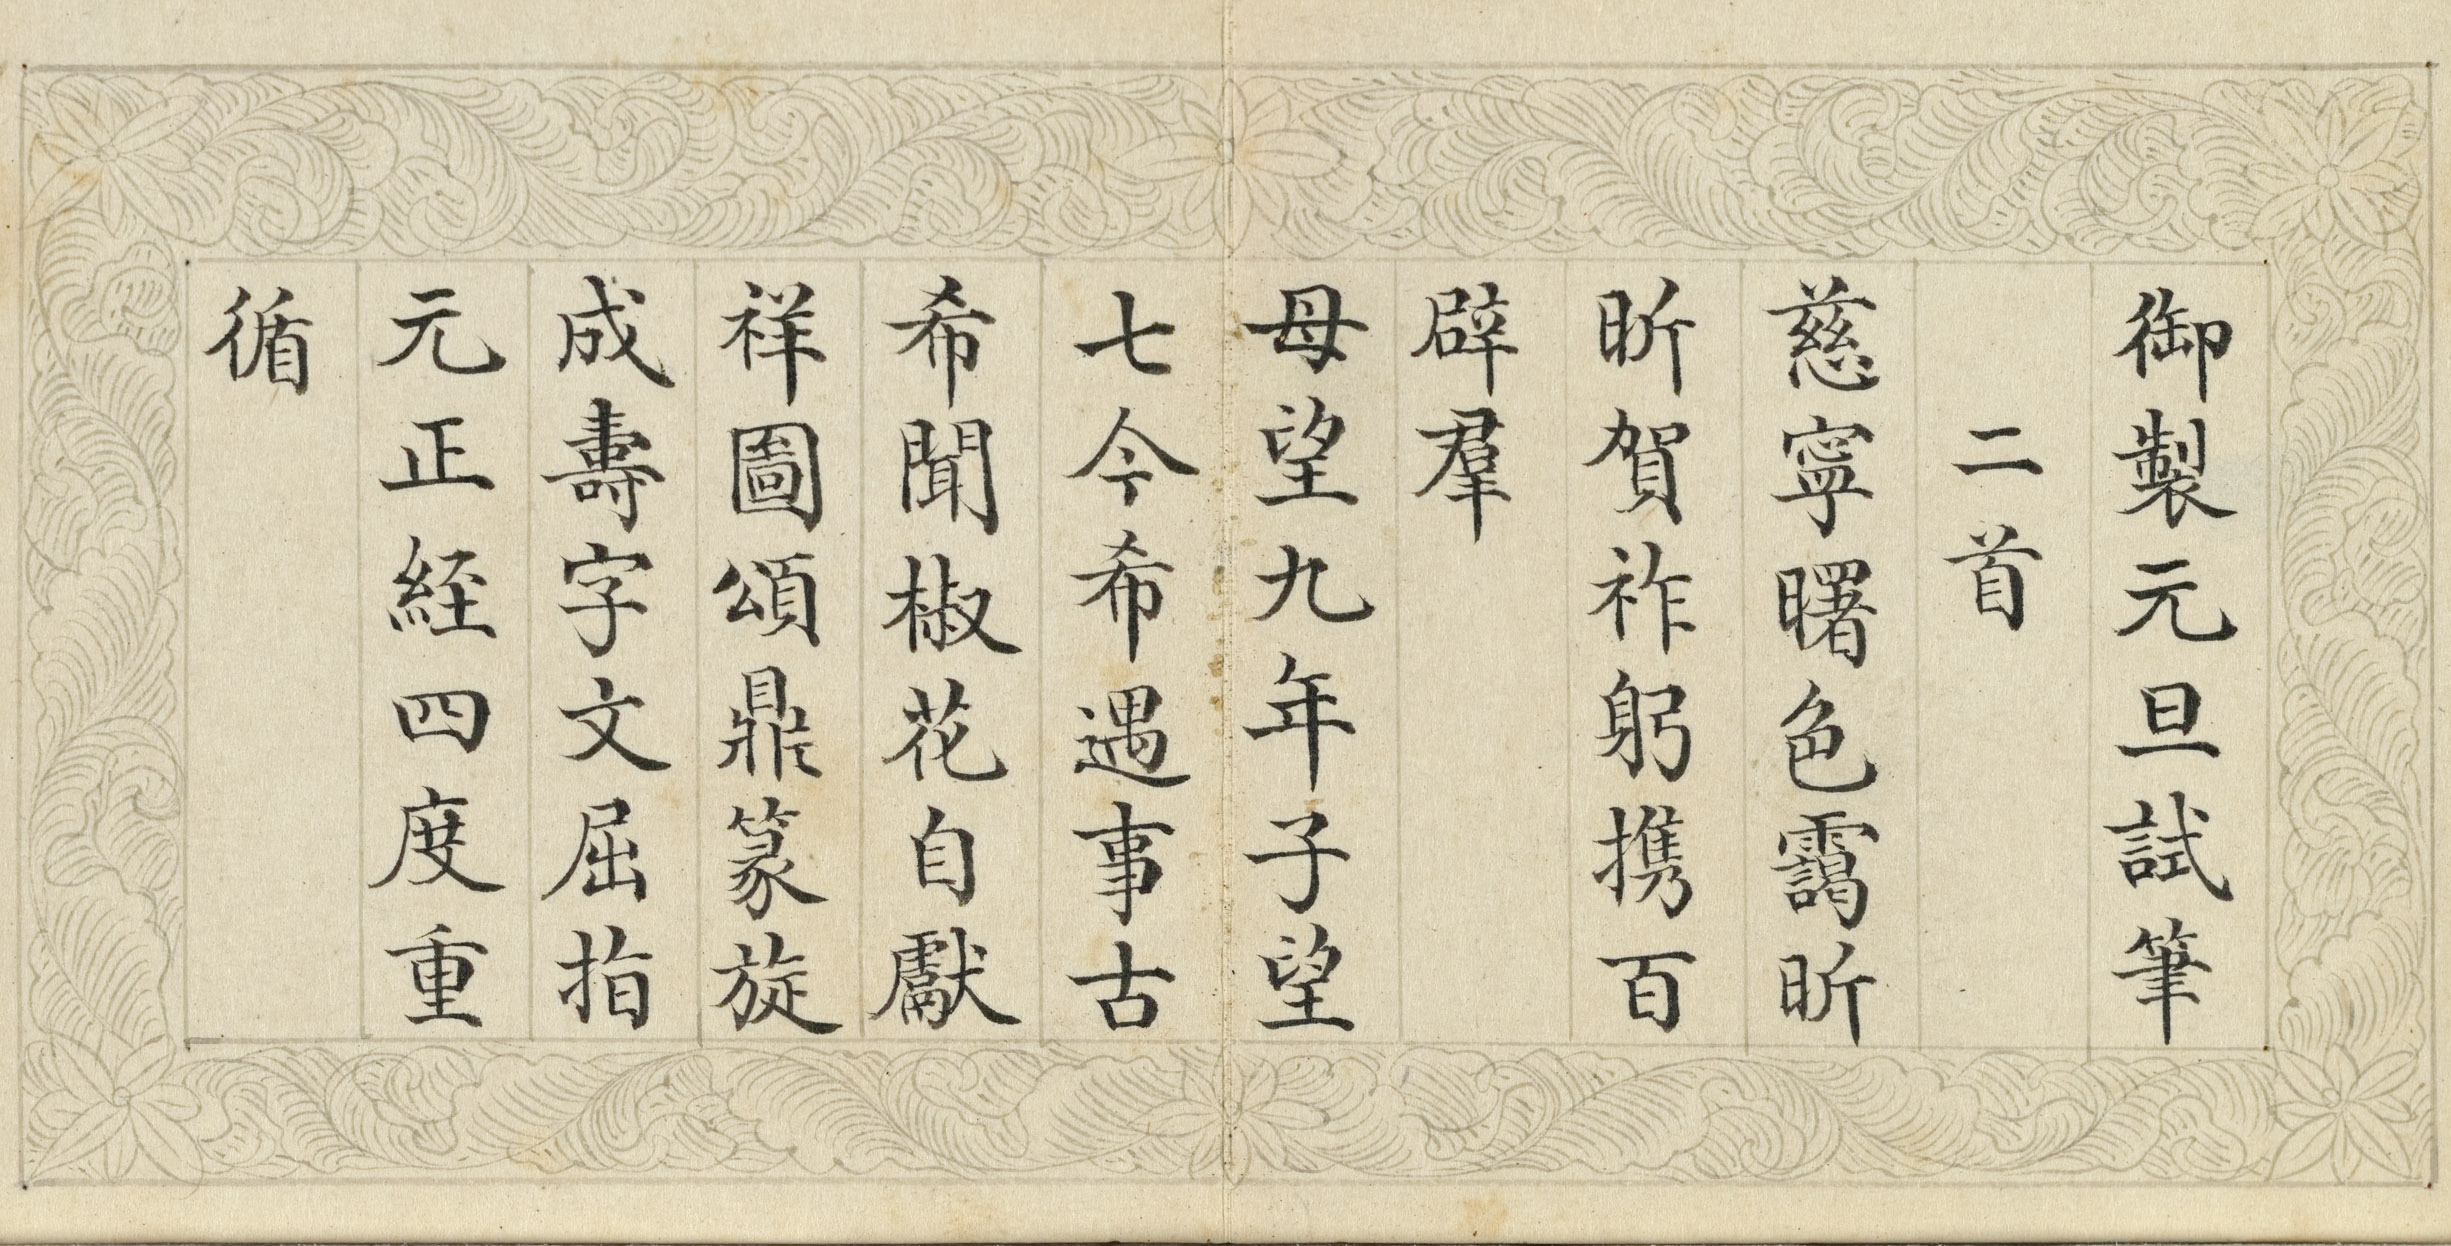 御製元旦試筆
二首
慈寧曙色靄昕
昕賀祚躬携百
辟羣
母望九年子望
七今希遇事古
希聞椒花自獻
祥圖頌鼎篆旋
成壽字文屈指
元正経四度重
循